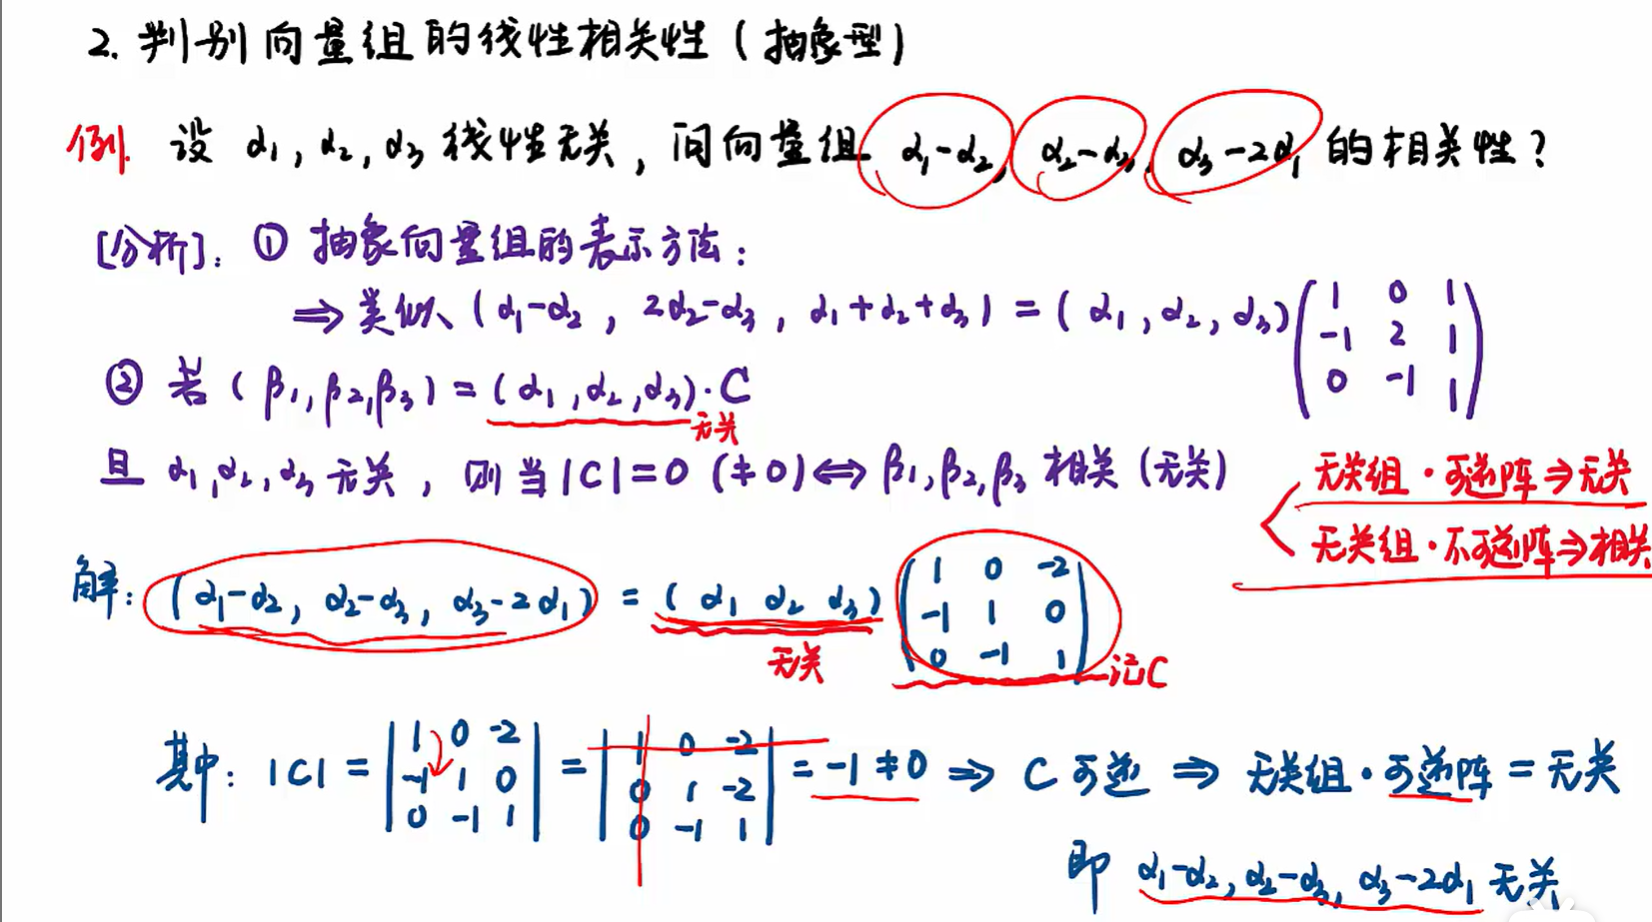 2. 判别向量组的线性相关性（抽象型）
例. 设 α₁, α₂, α₃ 线性无关, 问向量组 α₁-α₂, α₂-α₃, α₃-2α₁ 的相关性?
[分析]: ① 抽象向量组的表示方法:
⇒ 类似 (α₁-α₂, 2α₂-α₃, α₁+α₂+α₃) = (α₁, α₂, α₃)
1 0 1
-1 2 1
0 -1 1
② 若 (β₁, β₂, β₃) = (α₁, α₂, α₃)·C
无关
且 α₁, α₂, α₃ 无关, 则当 |C|=0 (≠0) ⇔ β₁, β₂, β₃ 相关 (无关)
无关组·可逆阵⇒无关
无关组·不可逆阵⇒相关
解: (α₁-α₂, α₂-α₃, α₃-2α₁) = (α₁ α₂ α₃)
1 0 -2
-1 1 0
0 -1 1
无关
记C
其中: |C| =
1 0 -2
-1 1 0
0 -1 1
=
1 0 -2
0 1 -2
0 -1 1
= -1 ≠ 0 ⇒ C 可逆 ⇒ 无关组·可逆阵 = 无关
即 α₁-α₂, α₂-α₃, α₃-2α₁ 无关